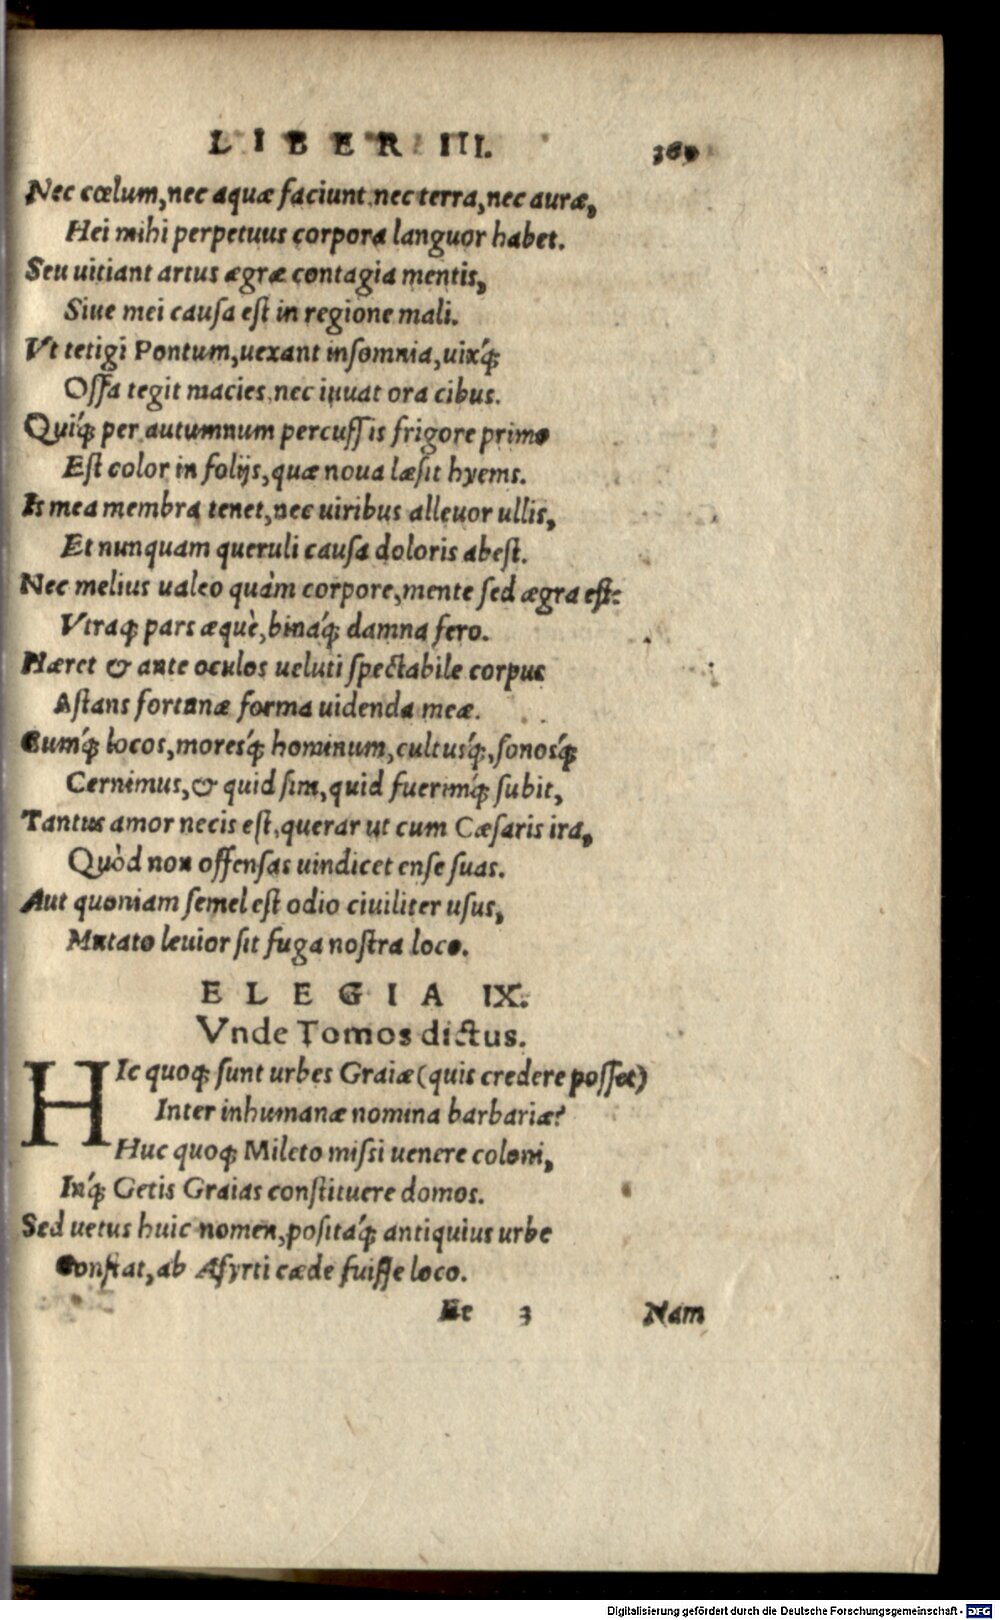 LIBER III.
Nec cœlum, nec aquæ faciunt, nec terra, nec auræ,
Hei mihi perpetuus corpora languor habet.
Seu uitiant artus ægræ contagia mentis,
Siue mei cauſa eſt in regione mali.
Vt tetigi Pontum, uexant inſomnia, uixq́;
Oſſa tegit macies, nec iuuat ora cibus.
Quiq́; per autumnum percuſſis frigore primo
Eſt color in folijs, quæ noua læſit hyems.
Is mea membra tenet, nec uiribus alleuor ullis,
Et nunquam queruli cauſa doloris abeſt.
Nec melius ualeo quàm corpore, mente ſed ægra eſt:
Vtraq; pars æquè, binaq́; damna fero.
Hæret & ante oculos ueluti ſpectabile corpus
Aſtans fortunæ forma uidenda meæ.
Cumq́; locos, moresq́; hominum, cultusq́;, ſonosq́;
Cernimus, & quid ſim, quid fuerimq́; ſubit,
Tantus amor necis eſt, querar ut cum Cæſaris ira,
Quòd non offenſas uindicet enſe ſuas.
Aut quoniam ſemel eſt odio ciuiliter uſus,
Mutato leuior ſit fuga noſtra loco.
ELEGIA IX.
Vnde Tomos dictus.
HIc quoq; ſunt urbes Graiæ (quis credere poſſet)
Inter inhumanæ nomina barbariæ?
Huc quoq; Mileto miſſi uenere coloni,
Inq́; Getis Graias conſtituere domos.
Sed uetus huic nomen, poſitaq́; antiquius urbe
Conſtat, ab Aſyrti cæde fuiſſe loco.
Ee 3 Nam
Digitalisierung gefördert durch die Deutsche Forschungsgemeinschaft - DFG